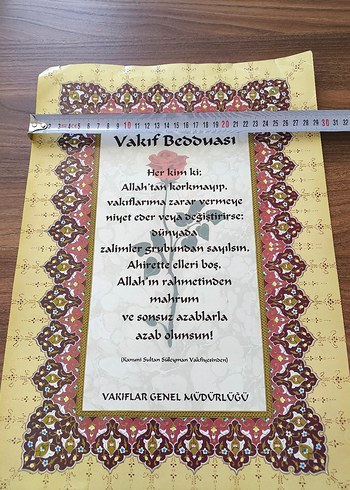 1 2 3 4 5 6 7 8 9 10 11 12 13 14 15 16 17 18 19 20 21 22 23 24 25 26 27 28 29 30 31 32
Vakıf Bedduası
Her kim ki:
Allah'tan korkmayıp,
vakıflarıma zarar vermeye
niyet eder veya değiştirirse:
dünyada
zalimler grubundan sayılsın.
Ahirette elleri boş,
Allah'ın rahmetinden
mahrum
ve sonsuz azablarla
azab olunsun!
(Kanuni Sultan Süleyman Vakfiyesinden)
VAKIFLAR GENEL MÜDÜRLÜĞÜ